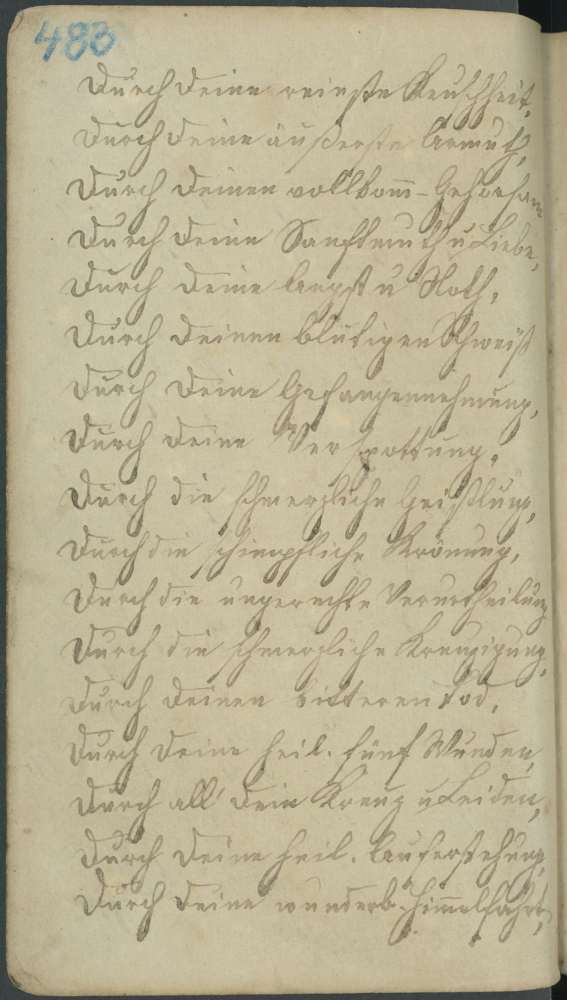 483
Durch deine reinste Keuschheit,
Durch deine äußerste Armuth,
Durch deinen vollkom̄- Gehorsam
Durch deine Sanftmuth u Liebe,
Durch deine Angst u Noth,
Durch deinen blutigen Schweiß
Durch deine Gefangennehmung,
Durch deine Verspottung,
Durch die schmerzliche Geißlung,
Durch die schimpfliche Krönung,
Durch die ungerechte Verurtheilung
Durch die schmerzliche Kreuzigung,
Durch deinen bitteren Tod,
Durch deine heil. fünf Wunden,
Durch all' dein Kreuz u Leiden,
Durch deine heil. Auferstehung,
Durch deine wunderb. Him̄elfahrt,